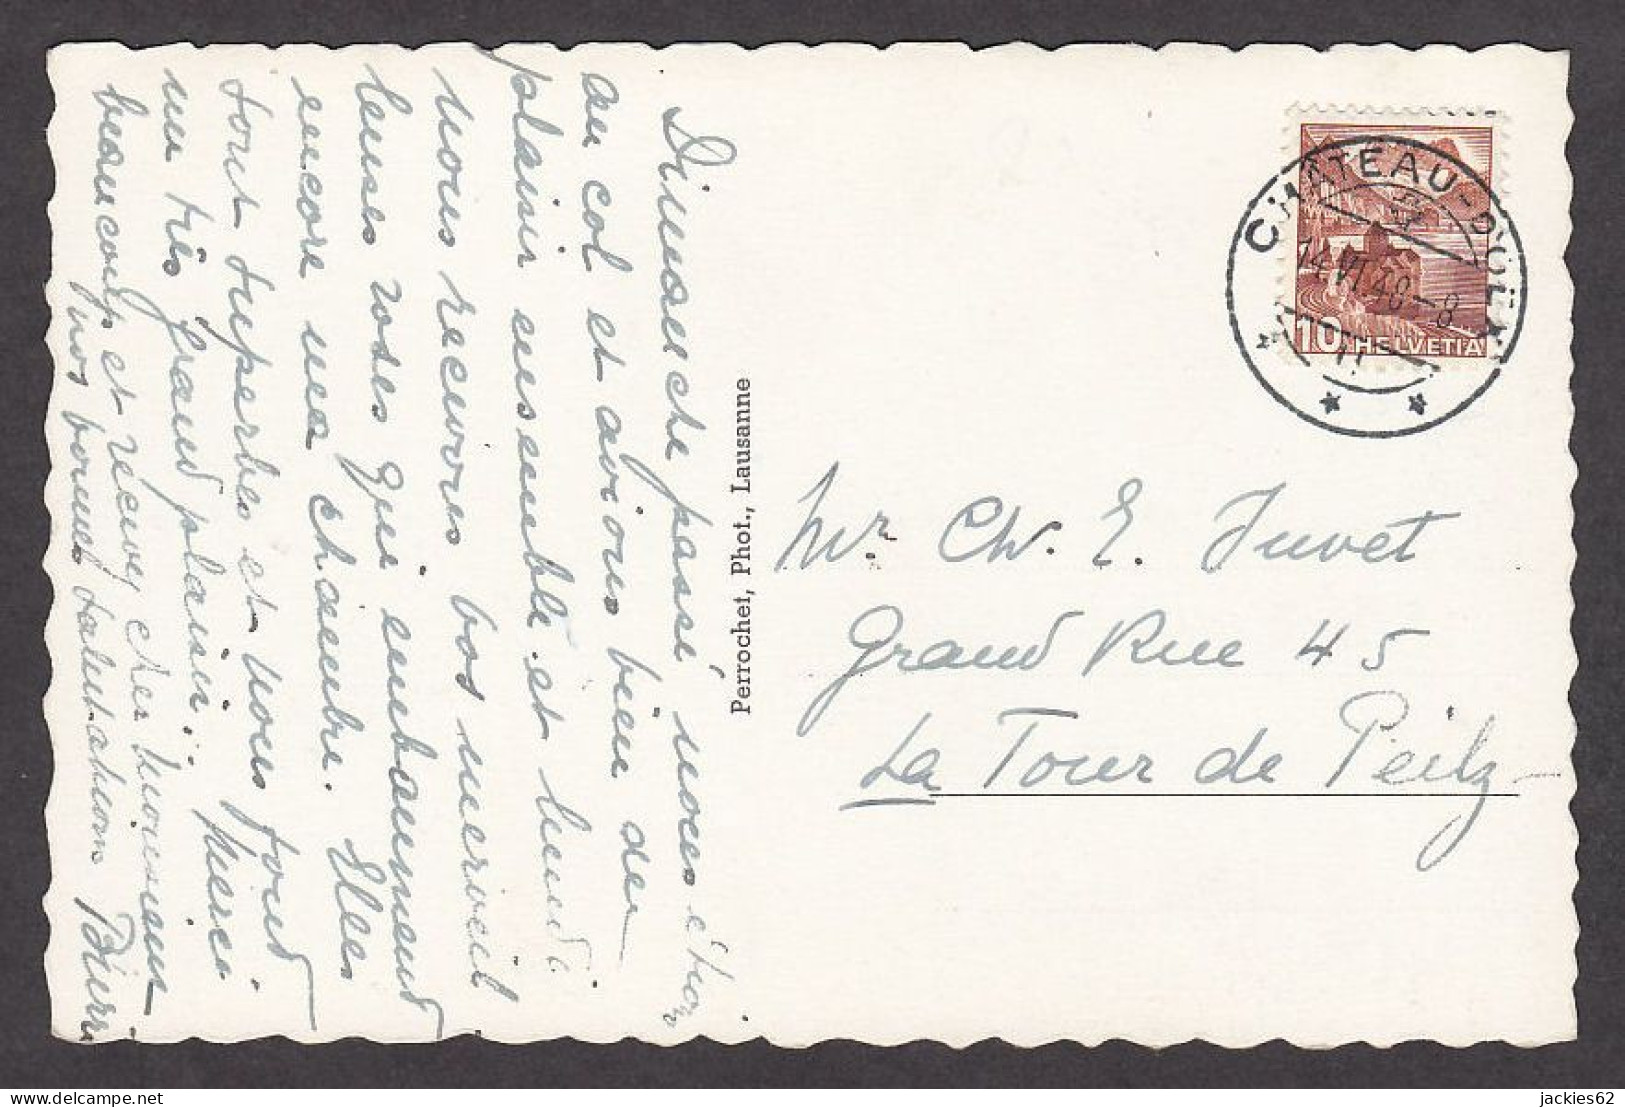 Dimanche passé nous étions
au col et avions bien du
plaisir ensemble et lundi
nous recevons vos merveil
leuses roses qui embaument
encore ma chambre. Elles
sont superbes et nous font
un très grand plaisir. Merci
beaucoup et recevez cher Monsieur
nos bonnes salutations
Perrochet, Phot., Lausanne
CHÂTEAU-D'ŒX
14.VI.48-8
10 HELVETIA
Mr Ch. E. Juvet
Grand Rue 45
La Tour de Peilz
jackies62